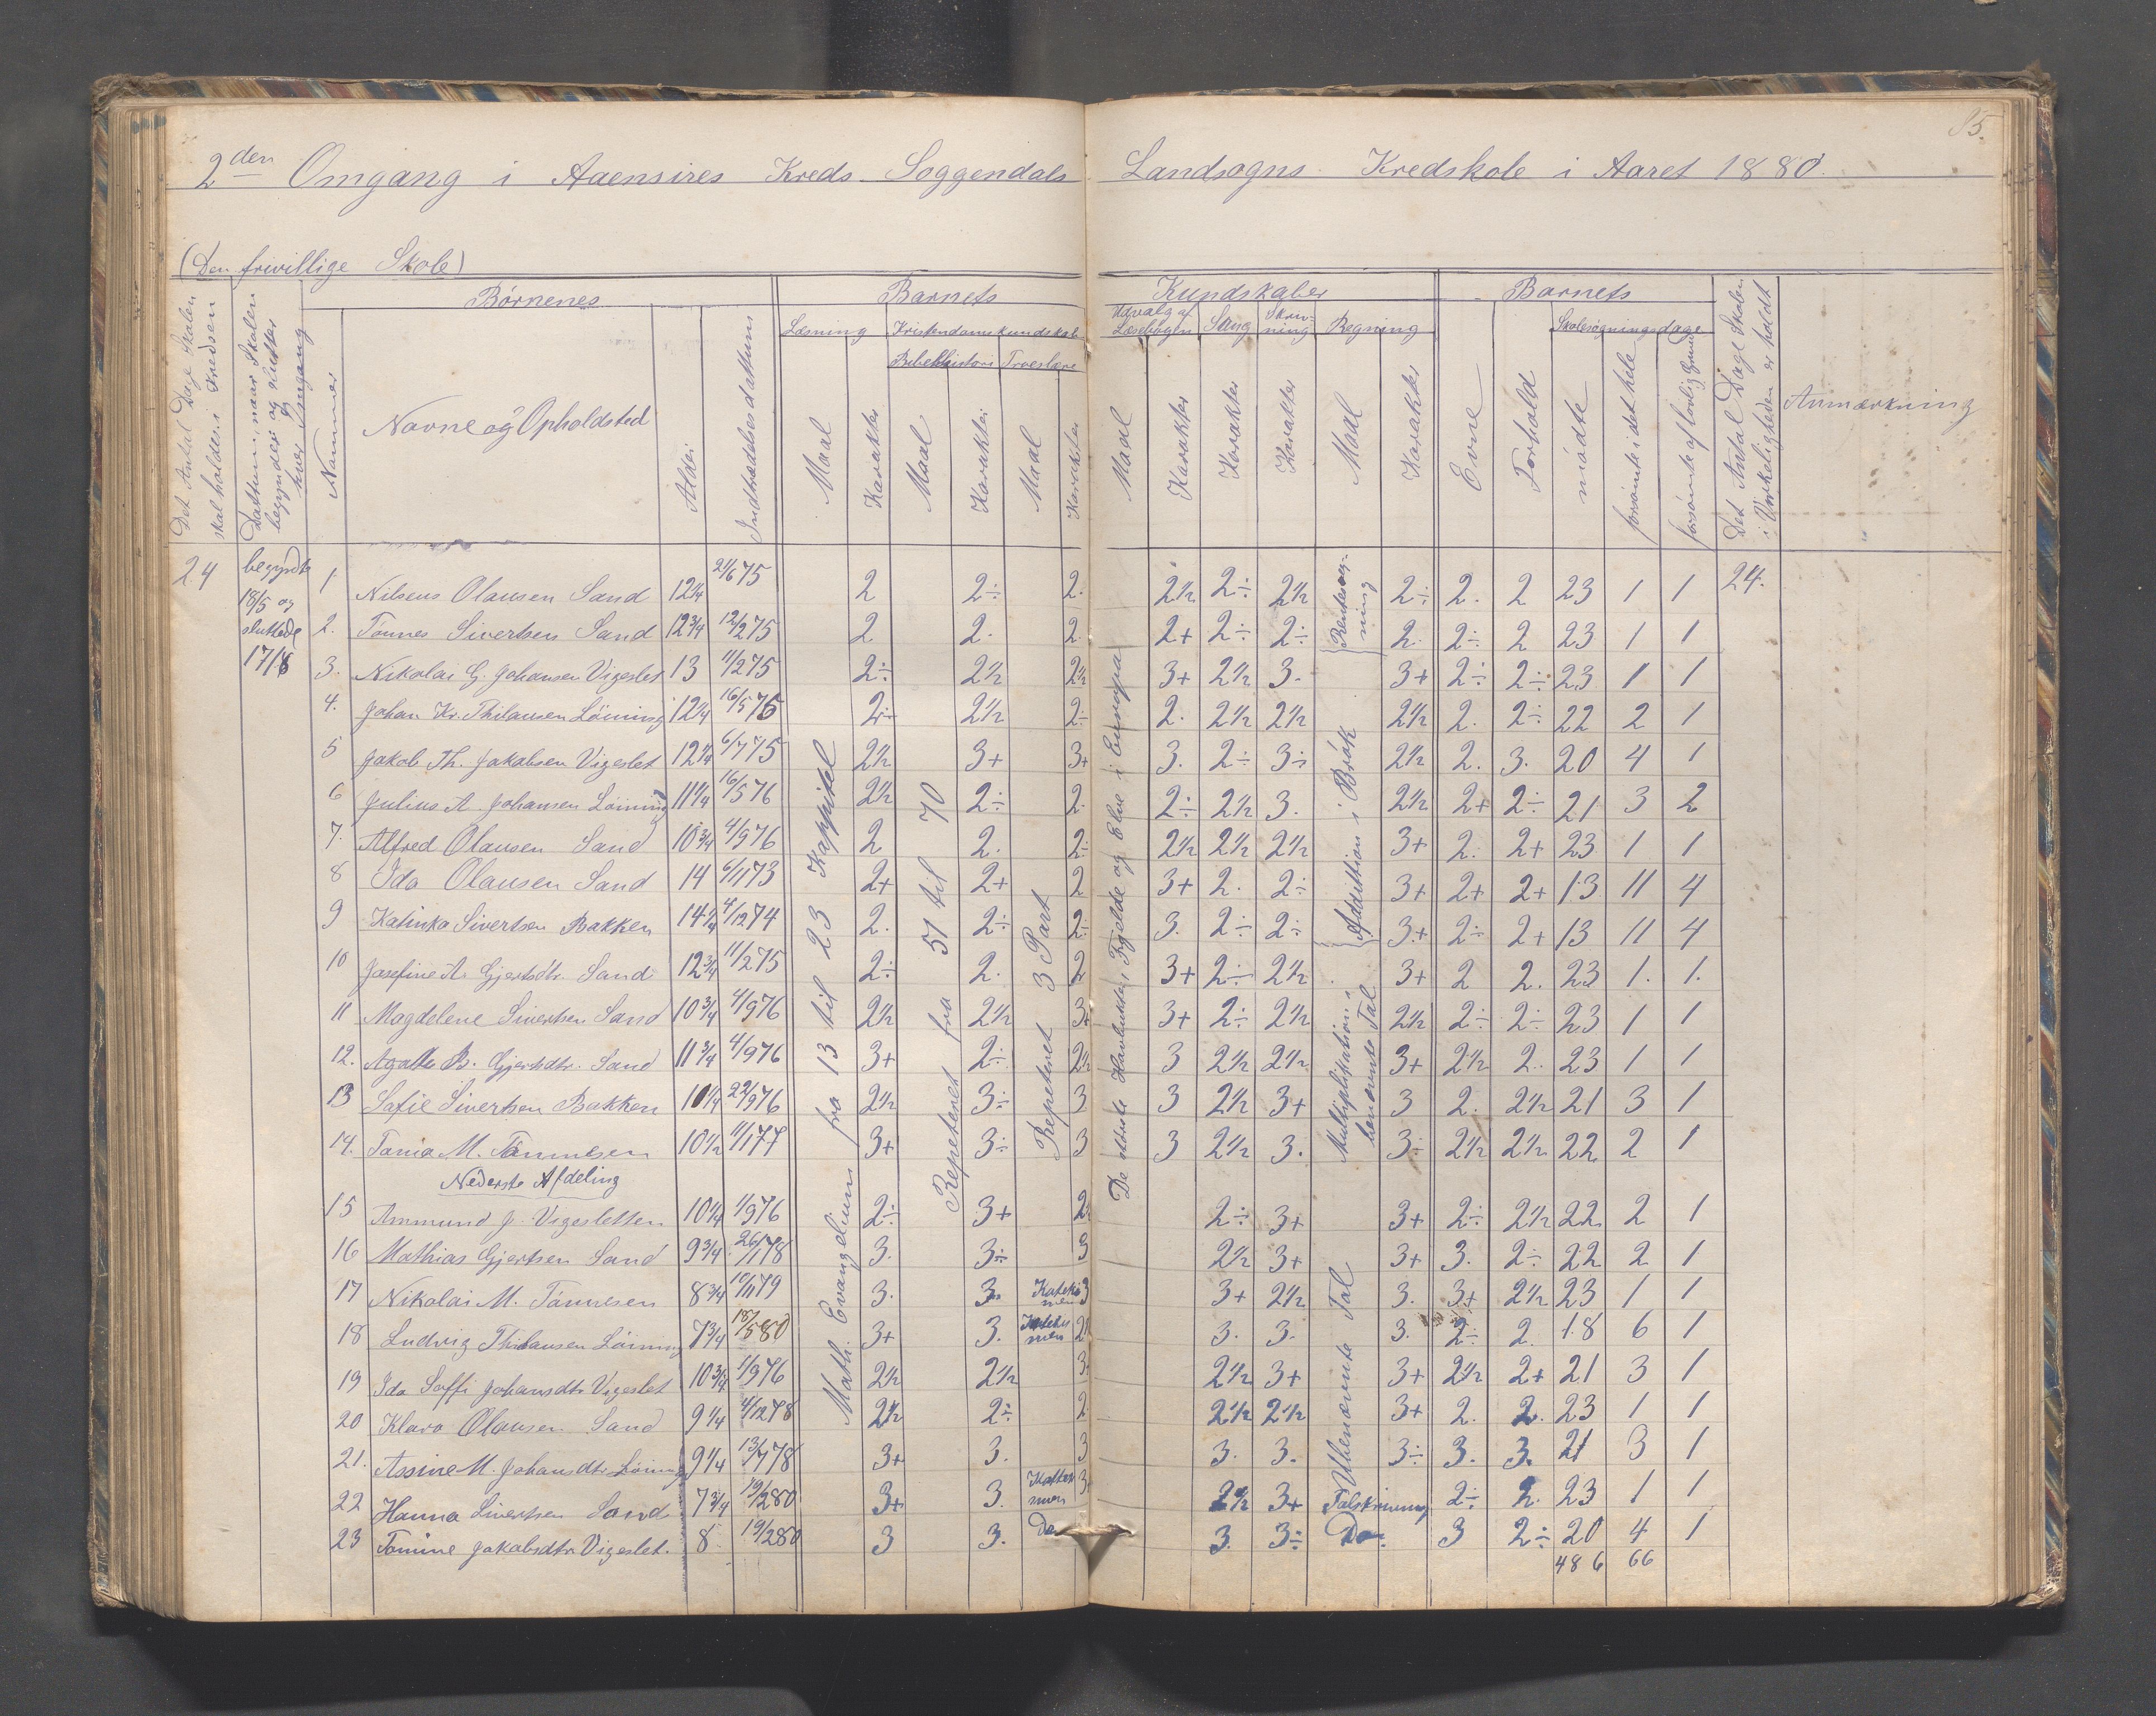 85.
2den Omgang i Aaensires Kreds Soggendals Landsogns Kredskole i Aaret 1880.
(Den frivillige Skole)
Børnenes Barnets Kundskaber Barnets
Det Antal Dage Skolen skal holdes i Kredsen
Dattum, naar Skolen begynder og slutter hver Omgang
Nummer
Navne og Opholdsted
Alder
Indtrædelsesdattum
Læsning Kristendomskundskab Udvalg af Læsebogen Sang Skrivning Regning Skolesøgningsdage
Bibelhistori Troeslære
Maal Karakter Maal Karakter Maal Karakter Maal Karakter Karakter Karakter Maal Karakter Evne Forhold mødte forsømte i det hele forsømte af lovlig Grund
Det Antal Dage Skolen i Virkeligheden er holdt
Anmærkning
24 begyndte 18/5 og sluttede 17/8
1 Nilseus Olausen Sand 12 1/4 21/6 75 2 2÷ 2. 2 1/2 2÷ 2 1/2 2÷ 2. 2 23 1 1 24.
2. Tønnes Sivertsen Sand 12 3/4 12/2 75 2 2. 2. 2+ 2÷ 2÷ 2. 2÷ 2 23 1 1
3. Nikolai G. Johansen Vigeslet 13 11/2 75 2÷ 2 1/2 2 1/2 3+ 2 1/2 3. 3+ 2÷ 2÷ 23 1 1
4. Johan Kr. Thilausen Løining 12 1/4 16/5 76 2÷ 2 1/2 2÷ 2. 2 1/2 2 1/2 2 1/2 2. 2÷ 22 2 1
5 Jakob Th. Jakobsen Vigeslet 12 1/4 6/7 75 2 1/2 3+ 3+ 3. 2÷ 3÷ 2 1/2 2. 3. 20 4 1
6 Julius A. Johansen Løining 11 1/4 16/5 76 2 1/2 2÷ 2. 2÷ 2 1/2 3. 2 1/2 2+ 2÷ 21 3 2
7. Alfred Olausen Sand 10 3/4 4/9 76 2 2. 2÷ 2 1/2 2 1/2 2 1/2 3+ 2. 2+ 23 1 1
8 Ida Olausen Sand 14 6/11 73 2+ 2+ 2 3+ 2. 2÷ 3+ 2+ 2+ 13 11 4
9 Katinka Sivertsen Bakken 14 2/4 4/12 74 2. 2÷ 2÷ 3. 2÷ 2÷ 3+ 2÷ 2+ 13 11 4
10 Josefine A. Gjertsdtr. Sand 12 3/4 11/2 75 2÷ 2. 2 3+ 2÷ 2 1/2 3+ 2 2. 23 1. 1.
11 Magdelene Sivertsen Sand 10 3/4 4/9 76 2 1/2 2 1/2 3+ 3+ 2÷ 2 1/2 2 1/2 2÷ 2÷ 23 1 1
12. Agate B. Gjertsdtr. Sand 11 3/4 4/9 76 3+ 2÷ 2 1/2 3 2 1/2 2 1/2 3+ 2 1/2 2. 23 1 1
13 Sofie Sivertsen Bakken 10 1/4 22/9 76 2 1/2 3÷ 3 3 2 1/2 3+ 3 2. 2 1/2 21 3 1
14. Tania M. Tønnesen 10 1/2 11/1 77 3+ 3÷ 3 3 2 1/2 3. 3÷ 2 1/2 2 1/2 22 2 1
Nederste Afdeling
15 Ammund J. Vigesletten 10 1/4 1/9 76 2÷ 3+ 2÷ 3+ 3+ 2÷ 2 1/2 22 2 1
16 Mathias Gjertsen Sand 9 3/4 26/1 78 3. 3÷ 3 2 1/2 3+ 3+ 3. 2÷ 22 2 1
17 Nikolai M. Tønnesen 8 3/4 10/11 79 3. 3. 3 3+ 2 1/2 3. 3+ 2 1/2 23 1 1
18 Ludvig Thilausen Løining 7 3/4 18/5 80 3+ 3. 3. 3. 3. 2÷ 2. 18 6 1
19 Ida Soffi Johansdtr Vigeslet 10 3/4 1/9 76 2 1/2 2 1/2 2 1/2 3+ 3+ 2 1/2 2+ 21 3 1
20 Klara Olausen Sand 9 1/4 4/12 78 2 1/2 2÷ 2 2 1/2 2 1/2 3+ 2. 2. 23 1 1
21. Assine M. Johansdtr Løining 9 1/4 13/7 78 3+ 3. 3 3. 3. 3÷ 3. 3. 21 3 1
22 Hanna Sivertsen Sand 7 3/4 19/2 80 3+ 3. 2 1/2 3+ Talskrivning 2÷ 2. 23 1 1
23 Tomine Jakobsdtr Vigeslet. 8 19/2 80 3 3. Do 3. 3÷ Do. 3 2÷ 20 4 1
486 66
Math. Evangelium fra 13 til 23 Kappitel
Repeteret fra 51 til 70
Repeteret 3 Part
De største Havbukter, Fjelde og Elve i Europa
Rentereg-
ning
Addition i Brøk
Multiplikation i
benævnte Tal
Ubenævnte Tal